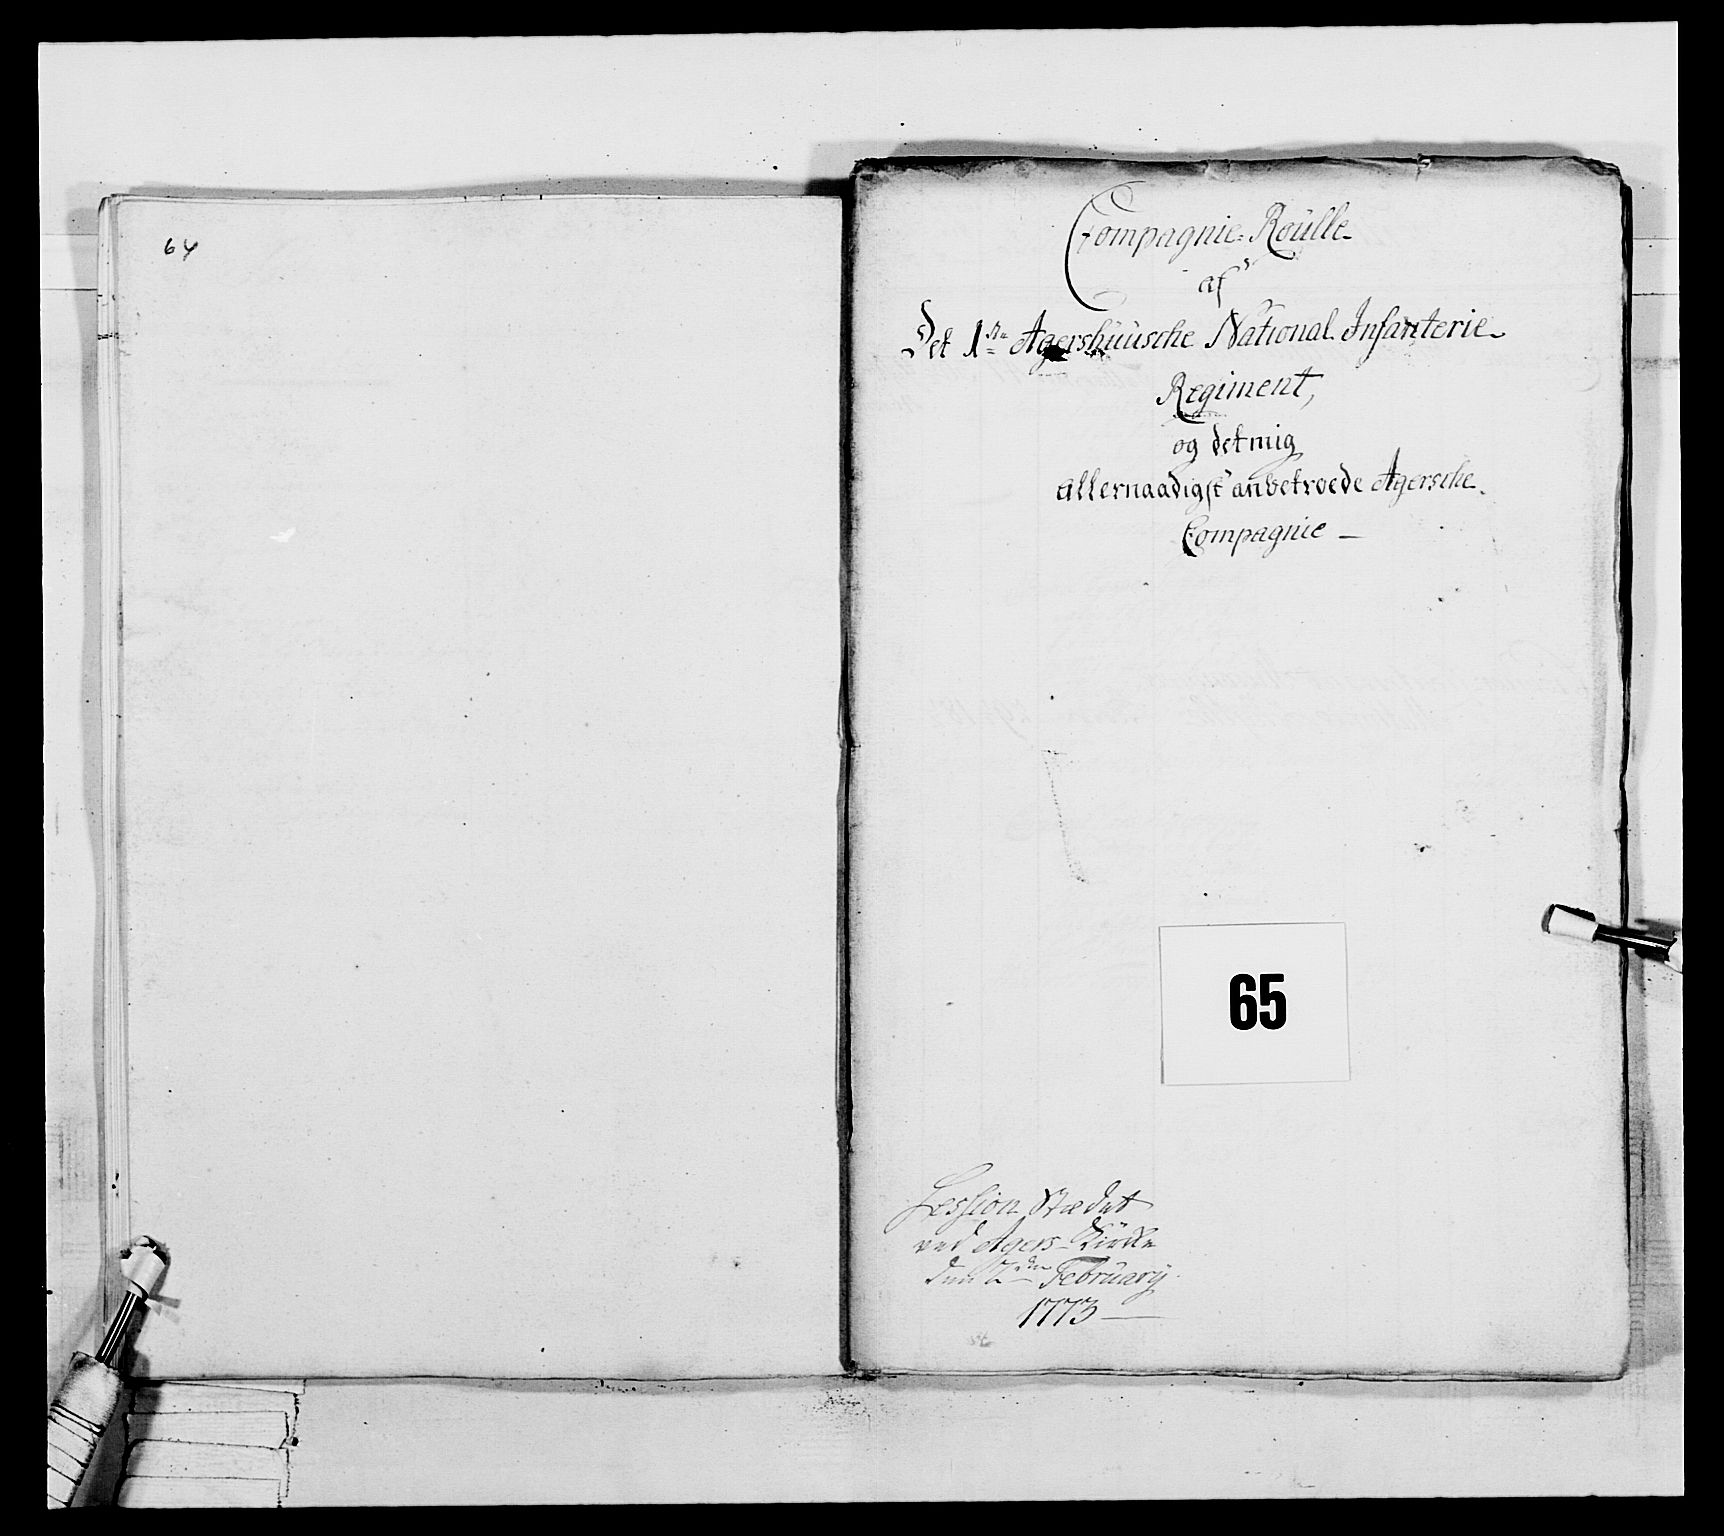 64
Compagnie-Roülle
af
Det 1ste Agershüüsche National Infanterie
Regiment,
og det mig
allernaadigst anbetroede Agersche
Compagnie —
65
Session Stædet
ved Agers Kircke
den 2den Februarÿ
1773 —